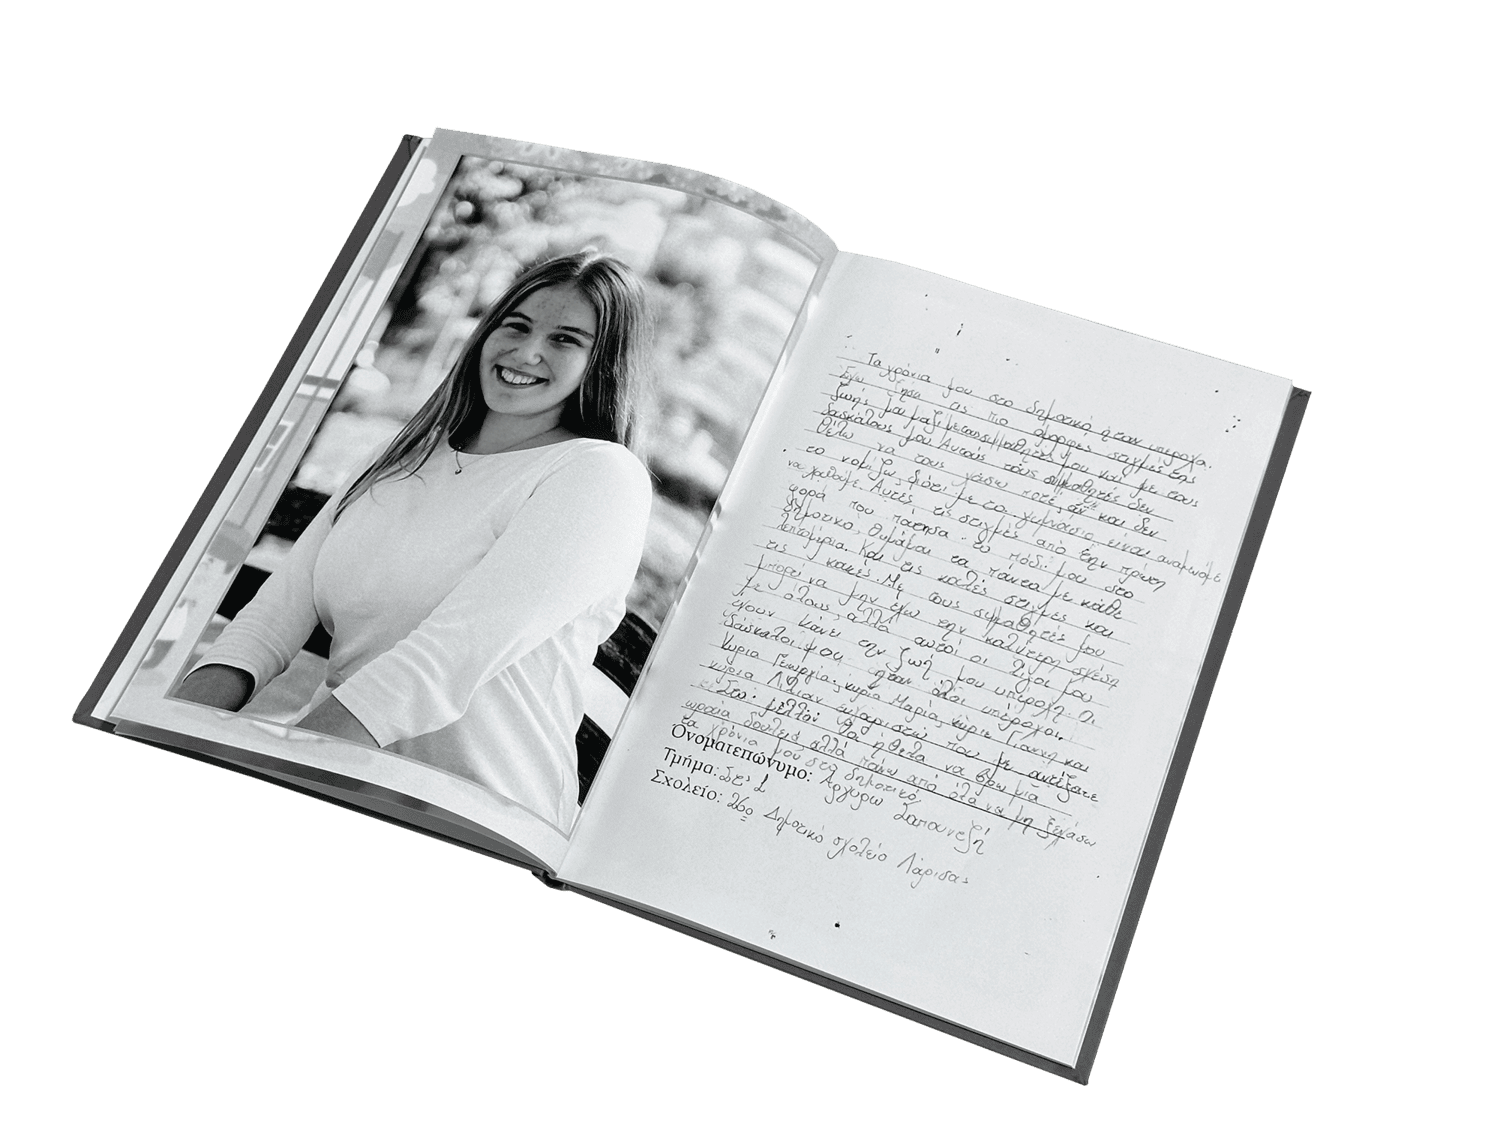 Τα χρόνια μου στο δημοτικό ήταν υπέροχα.
Έχω ζήσει τις πιο όμορφες στιγμές της
ζωής μου μαζί με τους συμμαθητές μου και με τους
δασκάλους μου. Αυτούς τους συμμαθητές δεν
θέλω να τους χάσω ποτέ, αν και δεν
το νομίζω, διότι με το γυμνάσιο είναι
να χαθούμε. Αυτές τις στιγμές από την πρώτη
φορά που πάτησα το πόδι μου στο
δημοτικό, θυμάμαι τα πάντα με κάθε
λεπτομέρια. Και τις καλές στιγμές και
τις κακές. Με τους συμμαθητές μου
μπορεί να μην έχω την καλύτερη σχέση
με όλους, αλλά αυτοί οι λίγοι μου
έχουν κάνει την ζωή μου υπέροχη. Οι
δάσκαλοί μου ήταν όλοι υπέροχοι.
Κυρία Γεωργία, κυρία Μαρία, κύριε Γιάννη και
κυρία Λίλιαν ευχαριστώ που με αντέξατε
Στο μέλλον θα ήθελα να βρω μια
ωραία δουλειά αλλά πάνω από όλα να μη ξεχάσω
τα χρόνια μου στο δημοτικό.
Ονοματεπώνυμο: Αργυρώ Σαπουνζή
Τμήμα: Στ' 1
Σχολείο: 26ο Δημοτικό σχολείο Λάρισας